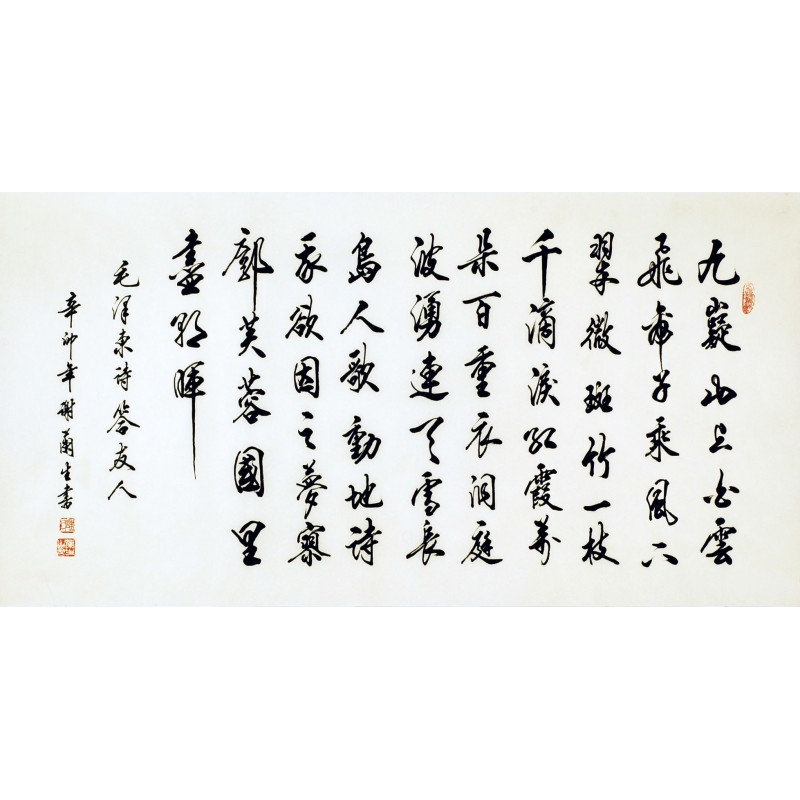 九嶷山上白雲
飛帝子乘風下
翠微斑竹一枝
千滴淚紅霞萬
朵百重衣洞庭
波湧連天雪長
島人歌動地詩
我欲因之夢寥
廓芙蓉國里
盡朝暉
毛澤東詩答友人
辛卯年謝蘭生書